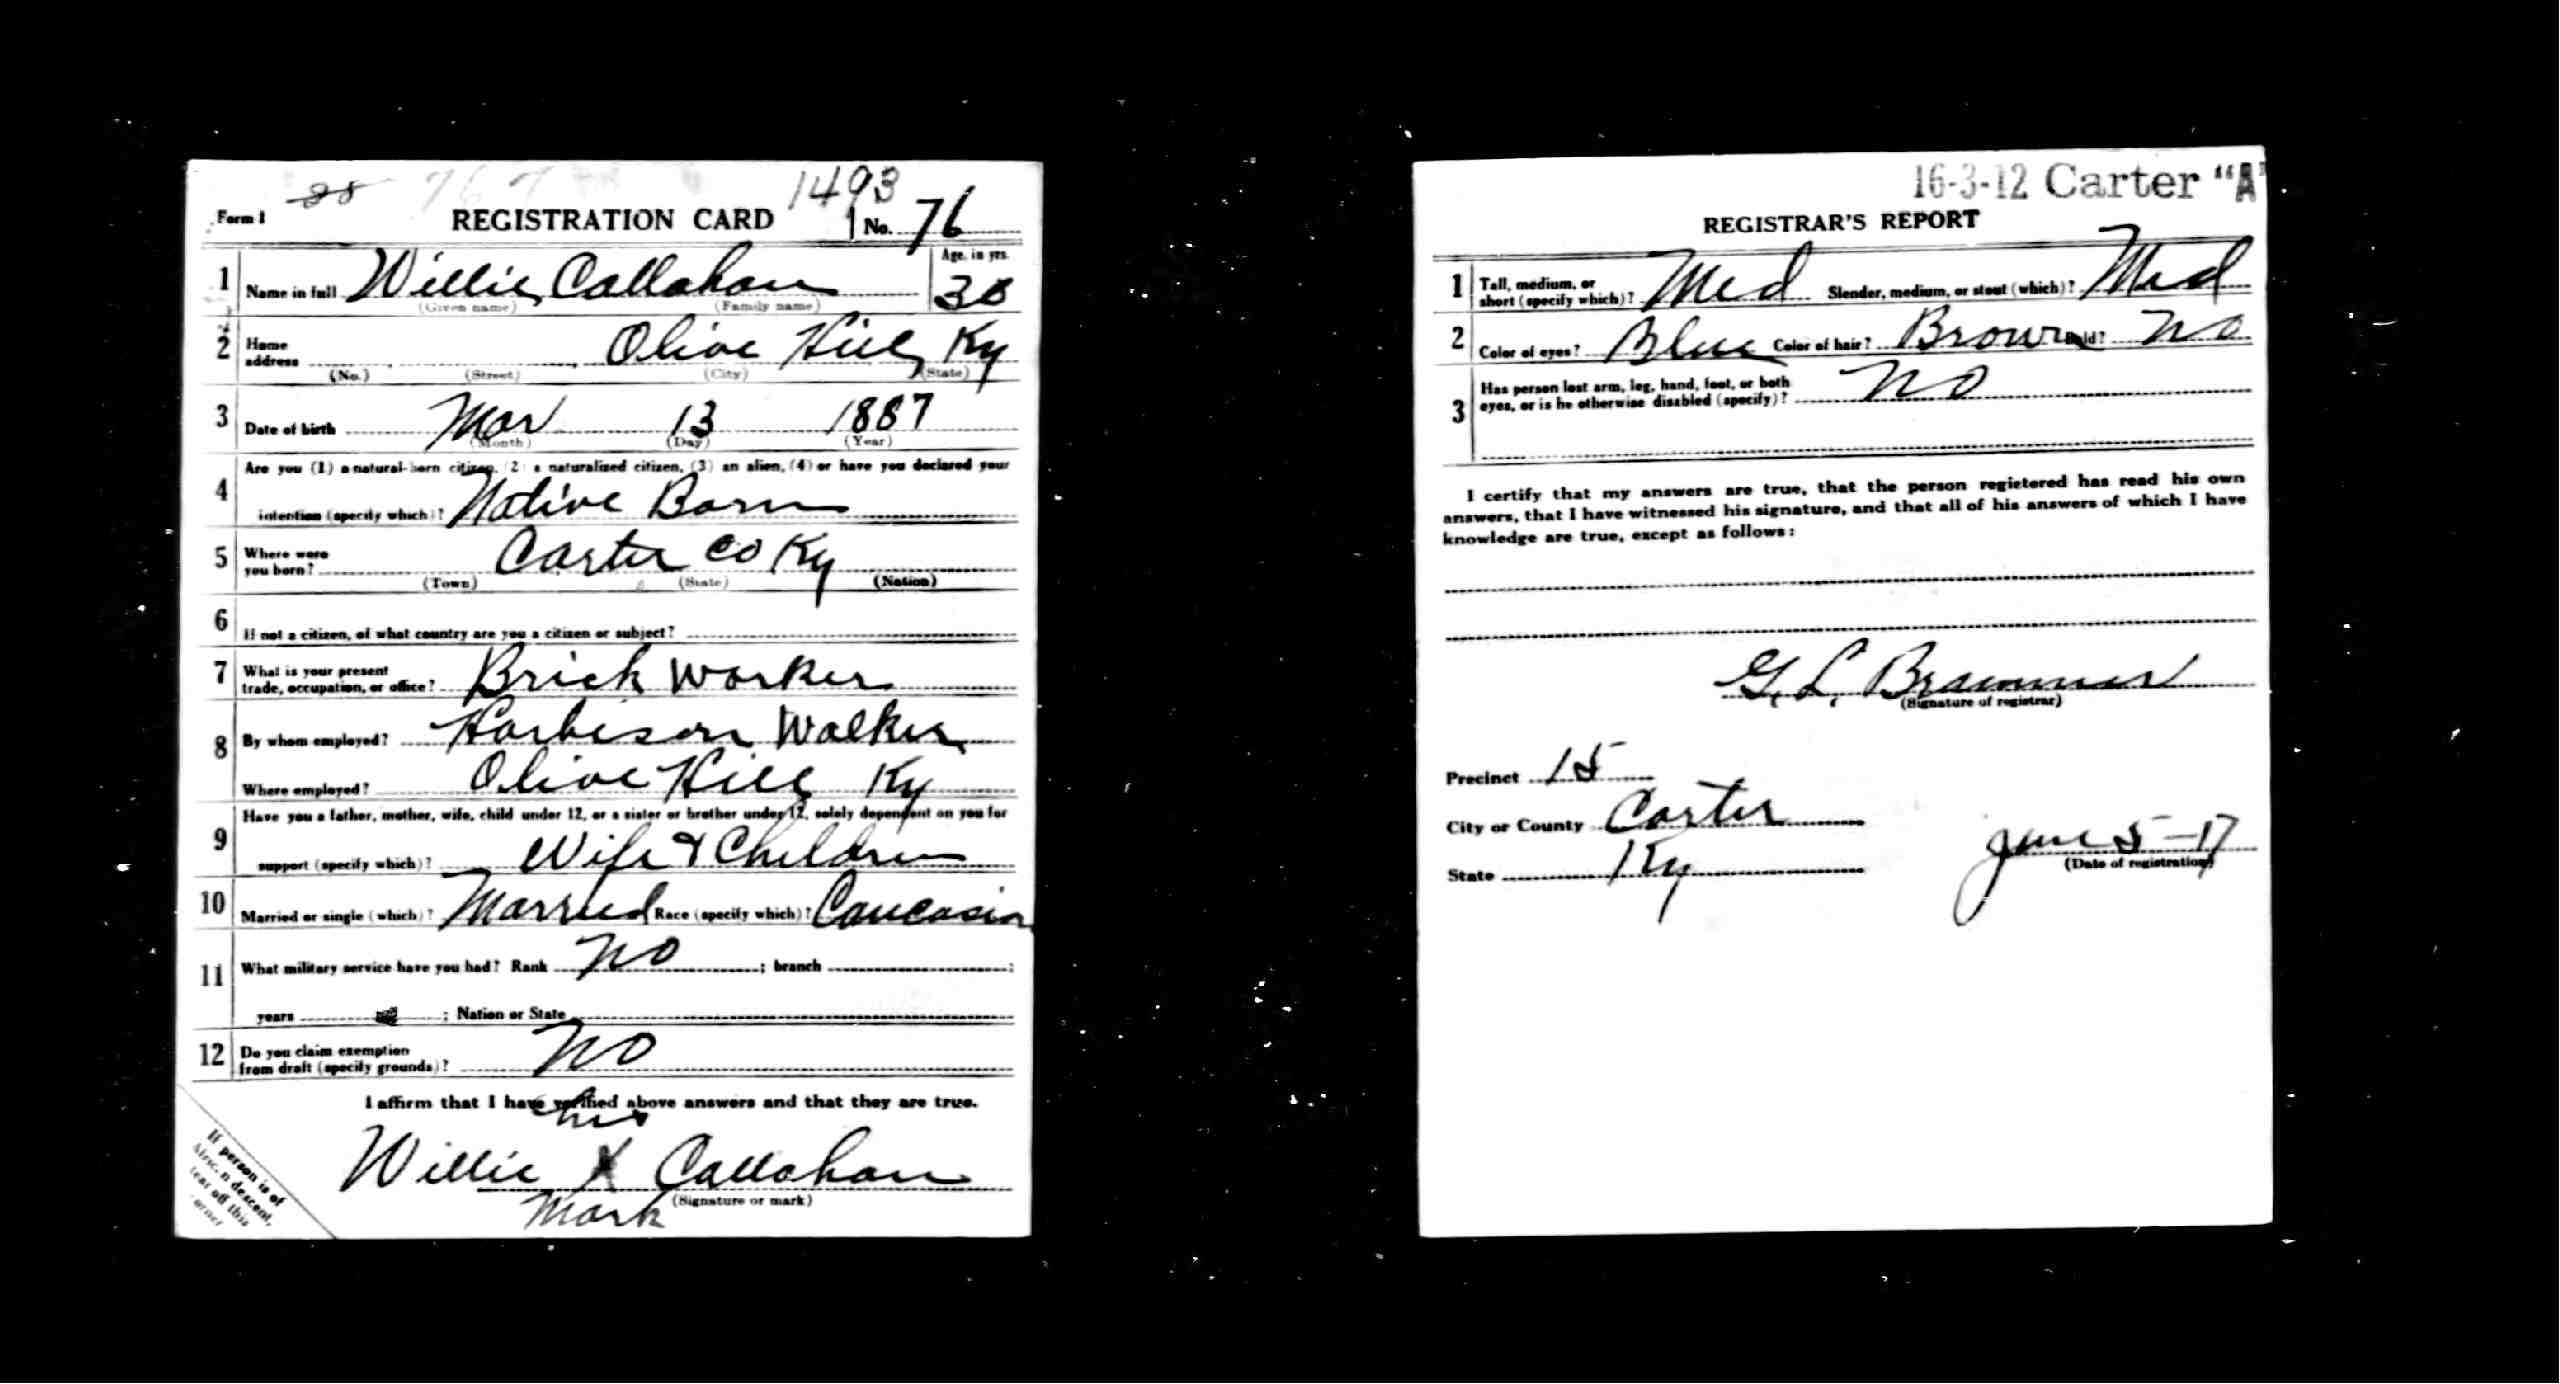 1493
Form 1 REGISTRATION CARD No. 76
1 Name in full Willie Callahan Age, in yrs. 30
(Given name) (Family name)
2 Home address Olive Hill, Ky
(No.) (Street) (City) (State)
3 Date of birth Mar 13 1887
(Month) (Day) (Year)
4 Are you (1) a natural-born citizen, (2) a naturalized citizen, (3) an alien, (4) or have you declared your
intention (specify which)? Native Born
5 Where were you born? Carter Co Ky
(Town) (State) (Nation)
6 If not a citizen, of what country are you a citizen or subject?
7 What is your present trade, occupation, or office? Brick Worker
8 By whom employed? Harbison Walker
Where employed? Olive Hill Ky
9 Have you a father, mother, wife, child under 12, or a sister or brother under 12, solely dependent on you for
support (specify which)? Wife & Children
10 Married or single (which)? Married Race (specify which)? Caucasian
11 What military service have you had? Rank No ; branch ;
years ; Nation or State
12 Do you claim exemption from draft (specify grounds)? No
I affirm that I have verified above answers and that they are true.
his
Willie X Callahan
(Signature or mark)
Mark
If person is of
descent,
tear off this
corner
16-3-12 Carter "A"
REGISTRAR'S REPORT
1 Tall, medium, or short (specify which)? Med Slender, medium, or stout (which)? Med
2 Color of eyes? Blue Color of hair? Brown Bald? No
3 Has person lost arm, leg, hand, foot, or both
eyes, or is he otherwise disabled (specify)? No
I certify that my answers are true, that the person registered has read his own
answers, that I have witnessed his signature, and that all of his answers of which I have
knowledge are true, except as follows:
G. L. Brammer
(Signature of registrar)
Precinct 15
City or County Carter
State Ky
June 5-17
(Date of registration)